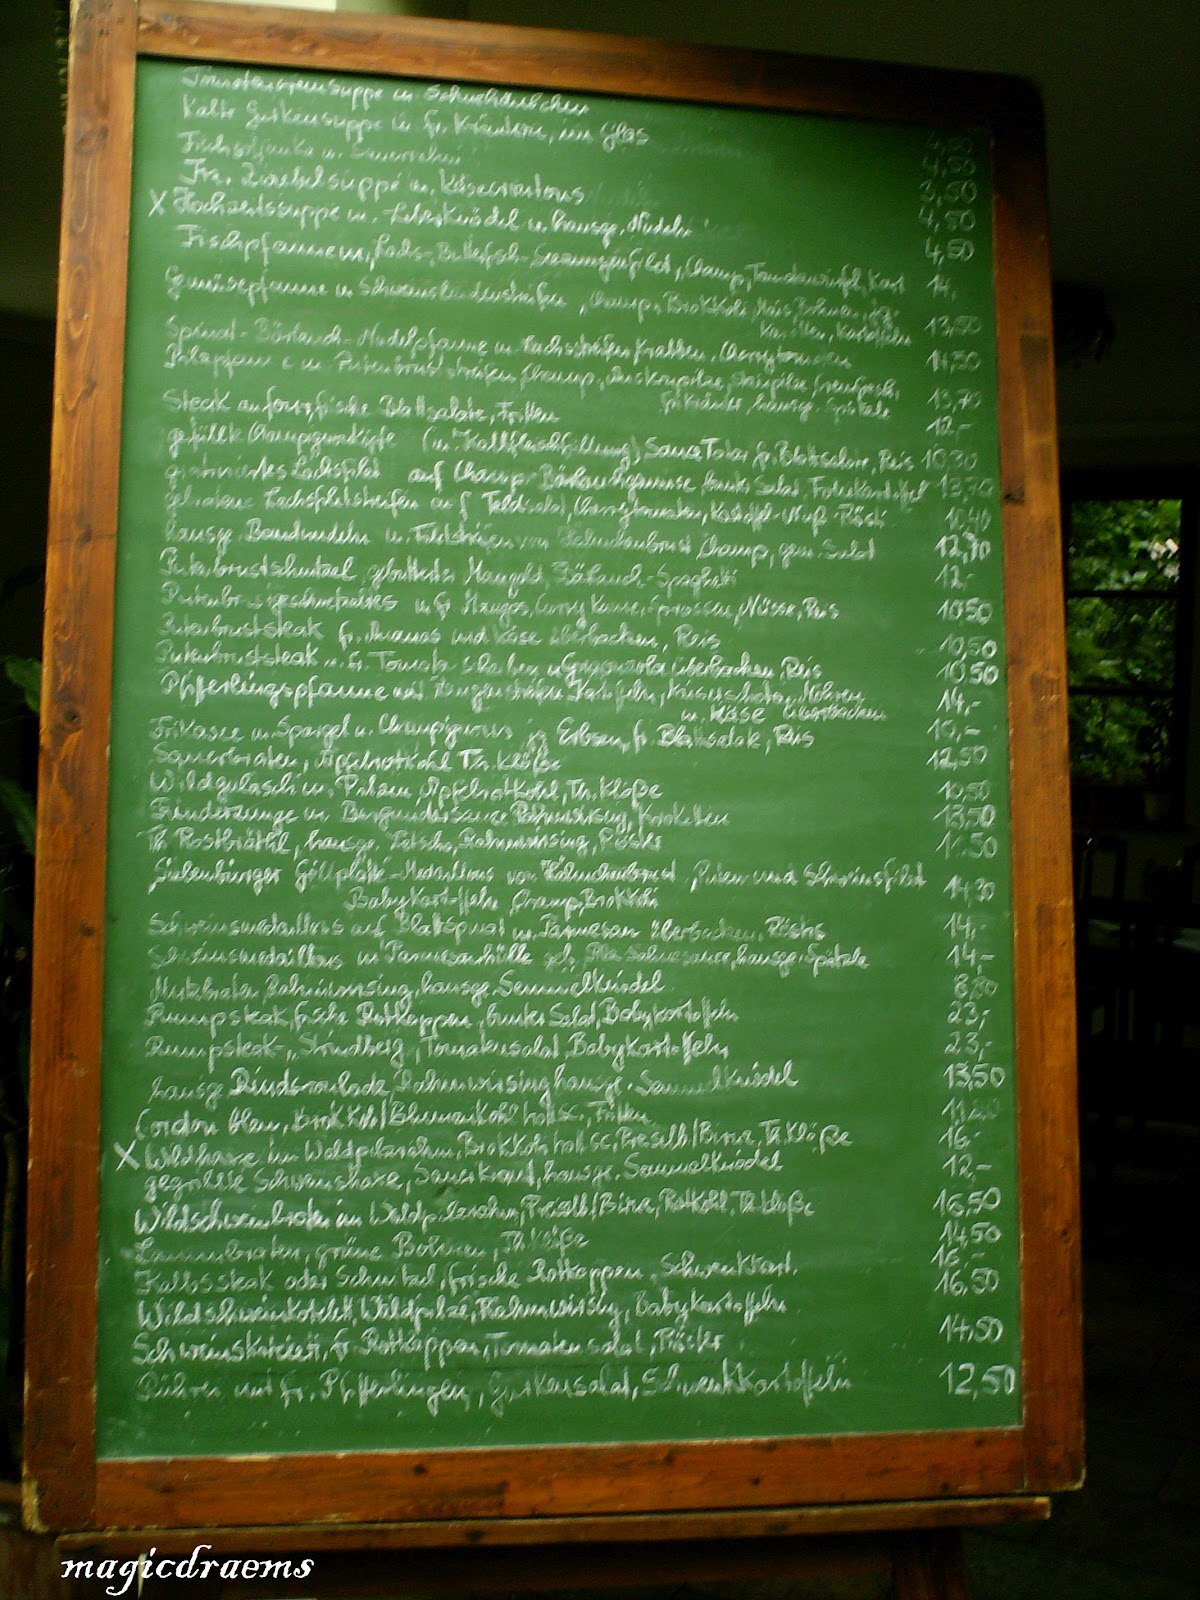 Tomatencremesuppe m. Sahnehäubchen
Kalte Gurkensuppe m. fr. Kräutern, im Glas 4,80
Fischsoljanka m. Sauerrahm 3,50
Frz. Zwiebelsuppe m. Käsecroutons 4,80
X Hochzeitssuppe m. Leberknödel u. hausge. Nudeln 4,50
Fischpfanne m. Lachs-, Butterfisch- Seezungenfilet, Champ, Tomatenwürfel, Kart 14,-
Gemüsepfanne m Schweinelendenstreifen, Champ, Brokkoli, Mais, Bohnen,
Karotten, Kartoffeln 13,50
Spinat-Bärlauch-Nudelpfanne m Lachsstreifen Krabben, Cherrytomaten 14,50
m Putenbruststreifen, Champ, Austernpilze, Steinpilze
fr. Kräuter, hausge. Spätzle 13,70
Steak au four, frische Blattsalate, Fritten 12,-
gefüllte Champignonköpfe (m. Kalbfleischfüllung) Sauce Tatar fr. Blattsalate, Reis 10,30
gratiniertes Lachsfilet auf Champ-Bärlauchgemüse, bunter Salat, Folienkartoffel 13,70
gebratene Lachsfiletstreifen auf Feldsalat, Cherrytomaten, Kartoffel-Nuß-Rösti 10,40
hausge. Bandnudeln m. Filetstreifen von Hähnchenbrust Champ, gem. Salat 12,70
Putenbrustschnitzel, gebutterter Mangold, Bärlauch-Spaghetti 12,-
Putenbrustgeschnetzeltes m fr Mangos, Curry Sprossen, Nüsse, Reis 10,50
Putenbruststeak fr. Ananas und Käse überbacken, Reis 10,50
Putenbruststeak m. fr. Tomatenscheiben u Gorgonzola überbacken, Reis 10,50
Pfifferlingspfanne mit Kartoffeln, Möhren
m. Käse überbacken 14,-
Frikasee m. Spargel u. Champignons jg Erbsen, fr. Blattsalate, Reis 10,-
Sauerbraten, Apfelrotkohl Th. Klöße 12,50
Wildgulasch m. Pilzen, Apfelrotkohl, Th. Klöße 10,50
Rinderzunge in Burgundersauce Rahmwirsing, Kroketten 13,50
Th Rostbrätel, hausge. Letscho, Rahmwirsing, Röster 11,50
Siebenbürger Grillplatte-Medaillons von Hähnchenbrust, Puten und Schweinsfilet
Babykartoffeln, Champ, Brokkoli 14,30
Schweinsmedaillons auf Blattspinat m. Parmesan überbacken, Röstis 14,-
Schweinsmedaillons in Parmesanhülle geb. Pilz Sahnesauce, hausge. Spätzle 14,-
Nutzbraten, Rahmwirsing, hausge. Semmelknödel 8,80
Rumpsteak, frische Rotkappen, bunter Salat, Babykartoffeln 23,-
Rumpsteak-„Strindberg", Tomatensalat, Babykartoffeln 23,-
hausge Rinderroulade, Rahmwirsing hausge. Semmelknödel 13,50
Cordon bleu, Brokkoli/Blumenkohl holl sc., Fritten 11,20
X Wildhaxe in Waldpilzrahm, Brokkoli holl sc, Preiselb/Birne, Th. Klöße 16,-
gegrillte Schweinshaxe, Sauerkraut, hausge. Semmelknödel 12,-
Wildschweinbraten in Waldpilzrahm, Preiselb/Birne, Rotkohl, Th. Klöße 16,50
Lammbraten, grüne Bohnen, Th. Klöße 14,50
Kalbssteak oder Schnitzel, frische Rotkappen, Schwenkkart. 16,-
Wildschweinkotelett, Waldpilze, Rahmwirsing, Babykartoffeln 16,50
Schweinskotelett, fr Rotkappen, Tomatensalat, Röster 14,50
Rührei mit fr. Pfifferlingen, Gurkensalat, Schwenkkartoffeln 12,50
magicdraems